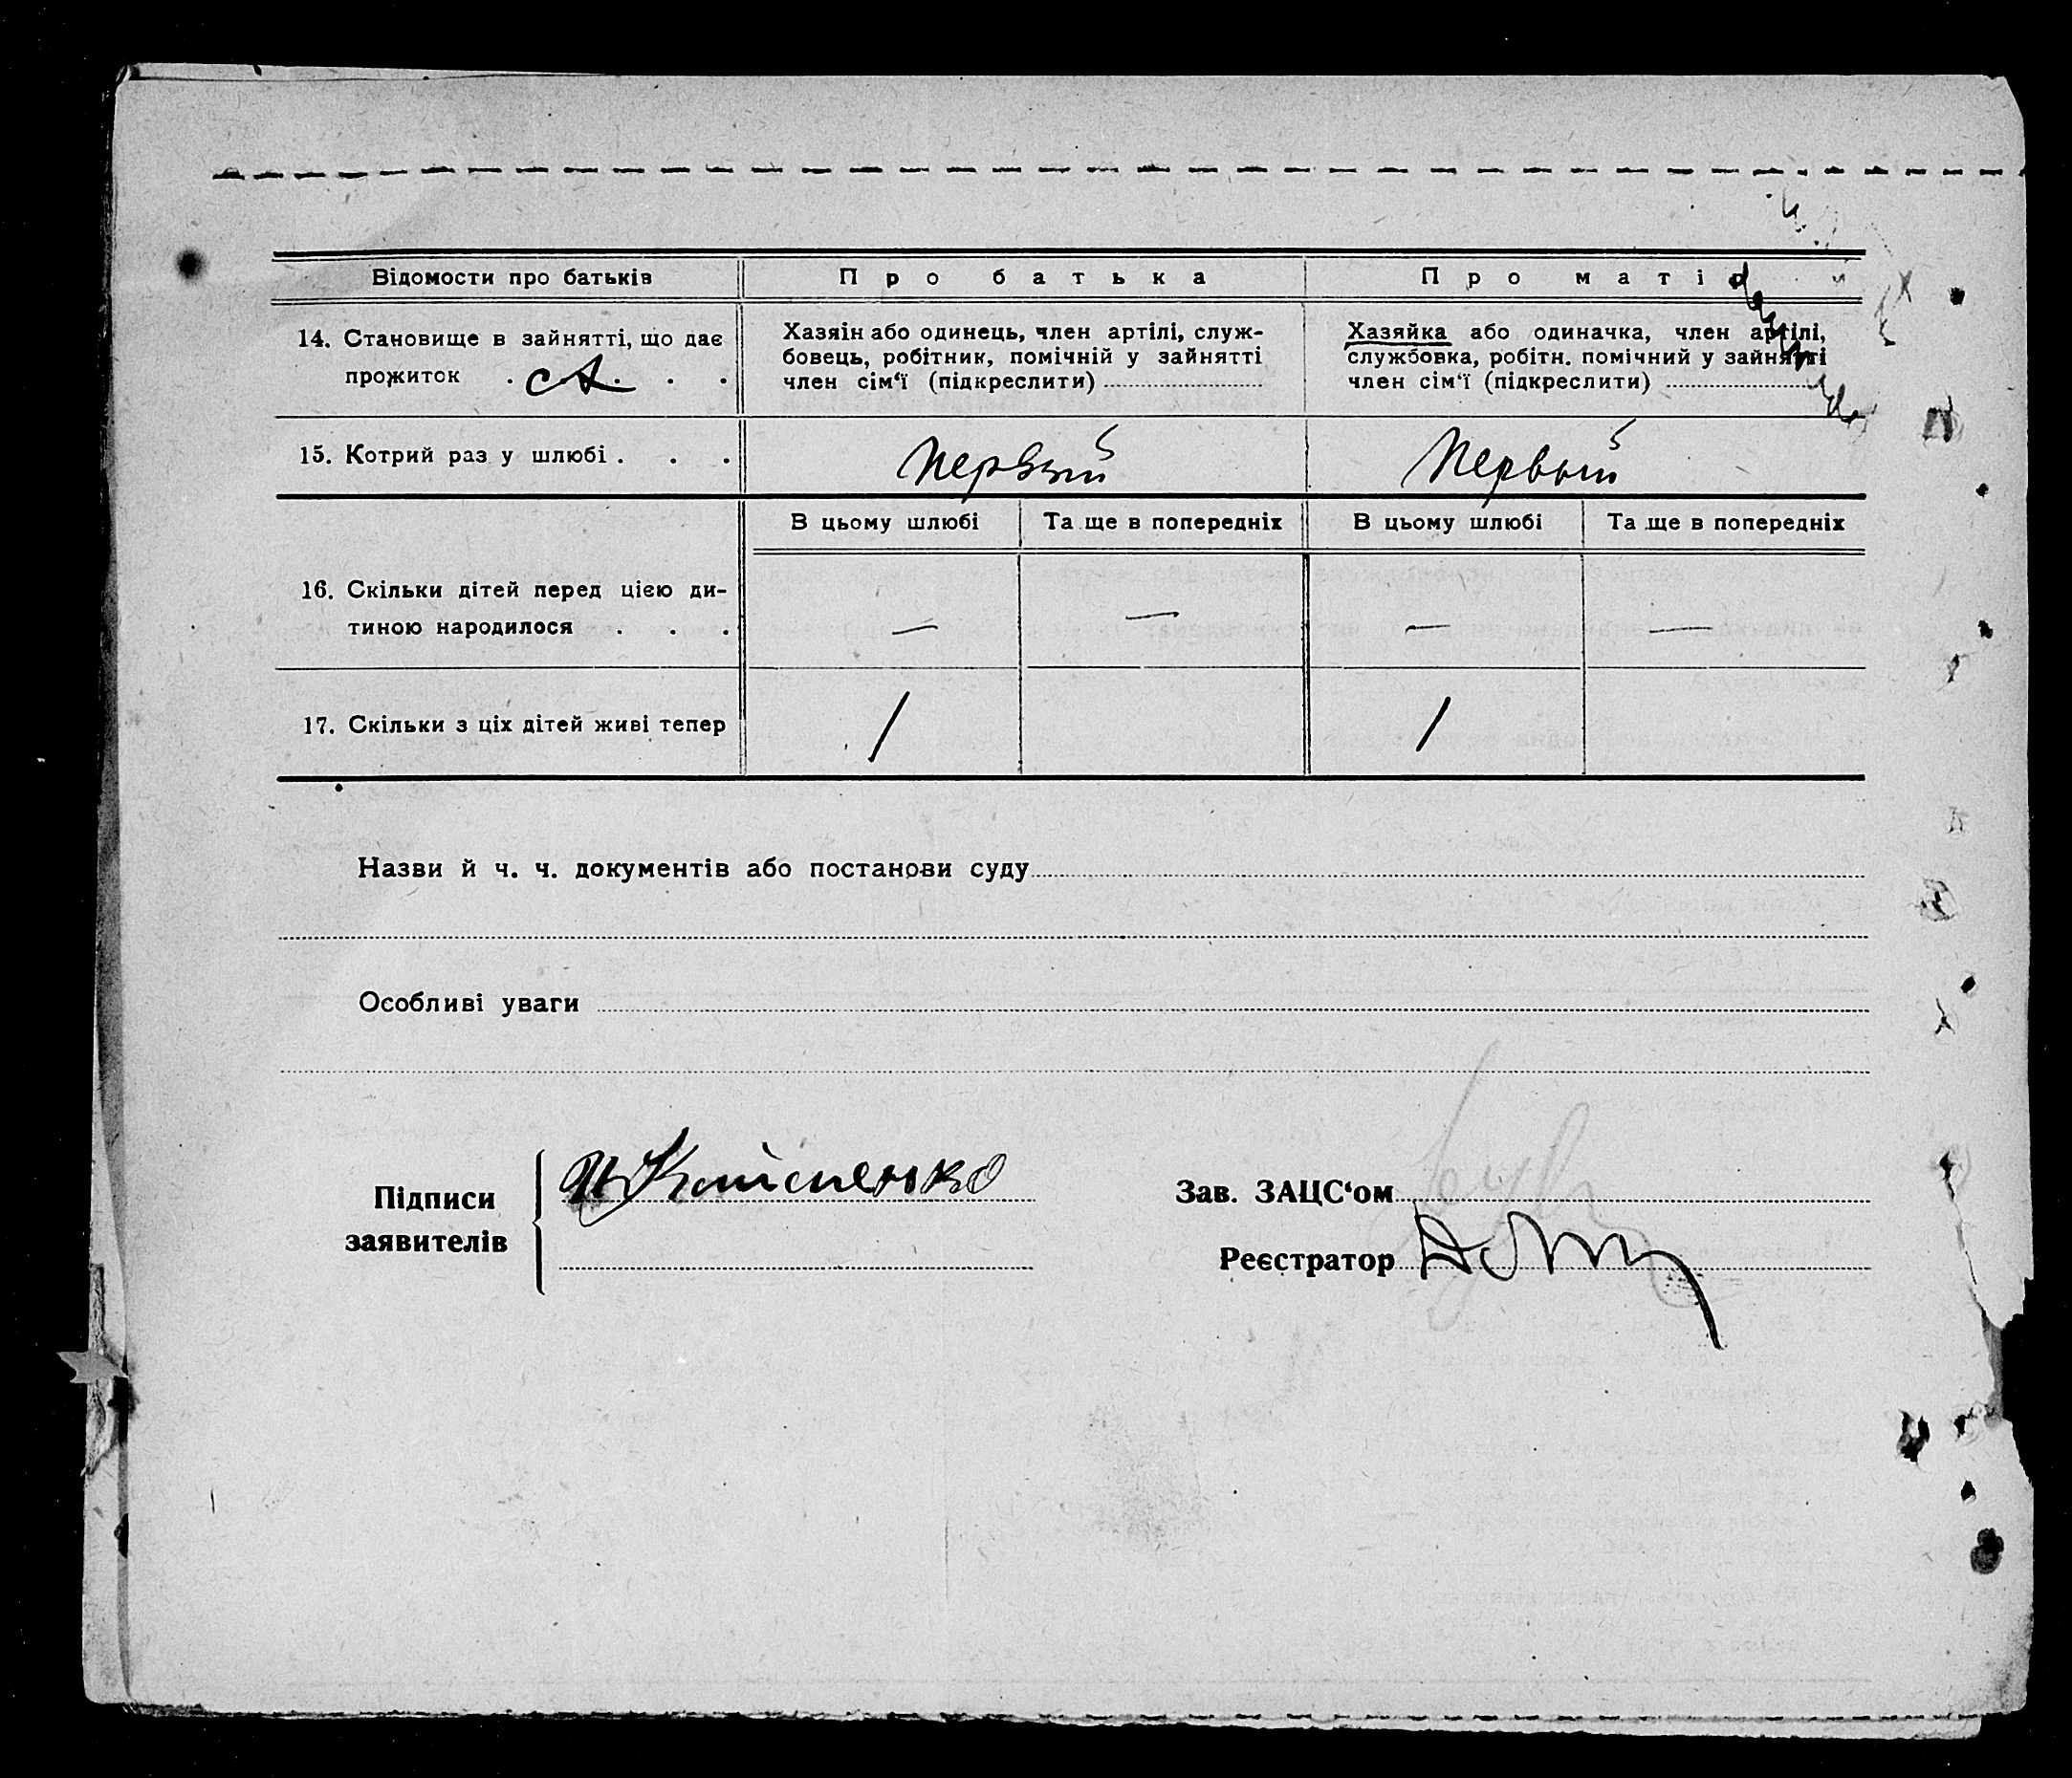 Відомости про батьків
Про батька
Про матір
14. Становище в зайнятті, що дає
прожиток . . . .
Хазяін або одинець, член артілі, служ-
бовець, робітник, помічній у зайнятті
член сім‘ї (підкреслити)
Хазяйка або одиначка, член артілі,
службовка, робітн. помічний у зайнятті
член сім‘ї (підкреслити)
15. Котрий раз у шлюбі . . .
Первый
Первый
В цьому шлюбі
Та ще в попередніх
В цьому шлюбі
Та ще в попередніх
16. Скільки дітей перед цією ди-
тиною народилося . . .
— — — —
17. Скільки з ціх дітей живі тепер
1 1
Назви й ч. ч. документів або постанови суду
Особливі уваги
Підписи
заявителів
Зав. ЗАЦС‘ом
Реєстратор